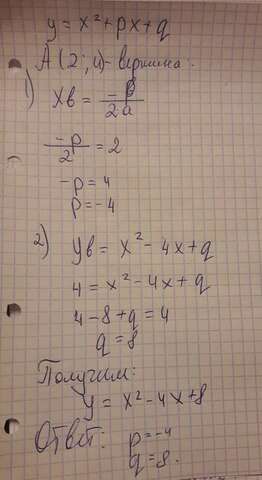 y = x² + px + q
A (2; 4) - вершина.
1) Xв = -p/2a
-p/2 = 2
-p = 4
p = -4
2) Yв = x² - 4x + q
4 = x² - 4x + q
4 - 8 + q = 4
q = 8
Получим:
y = x² - 4x + 8
Ответ: p = -4
q = 8.